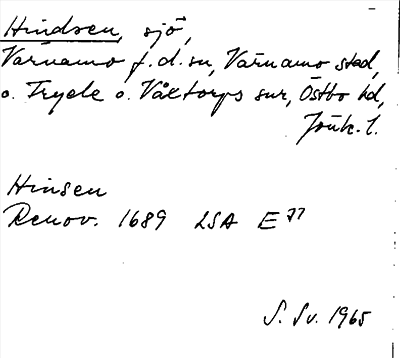 Hindsen, sjö,
Värnamo f.d. sn, Värnamo stad,
o. Tryele o. Våxtorps snr, Östbo hd,
Jönk. l.
Hinsen
Renov. 1689 LSA E 77
S. Sv. 1965